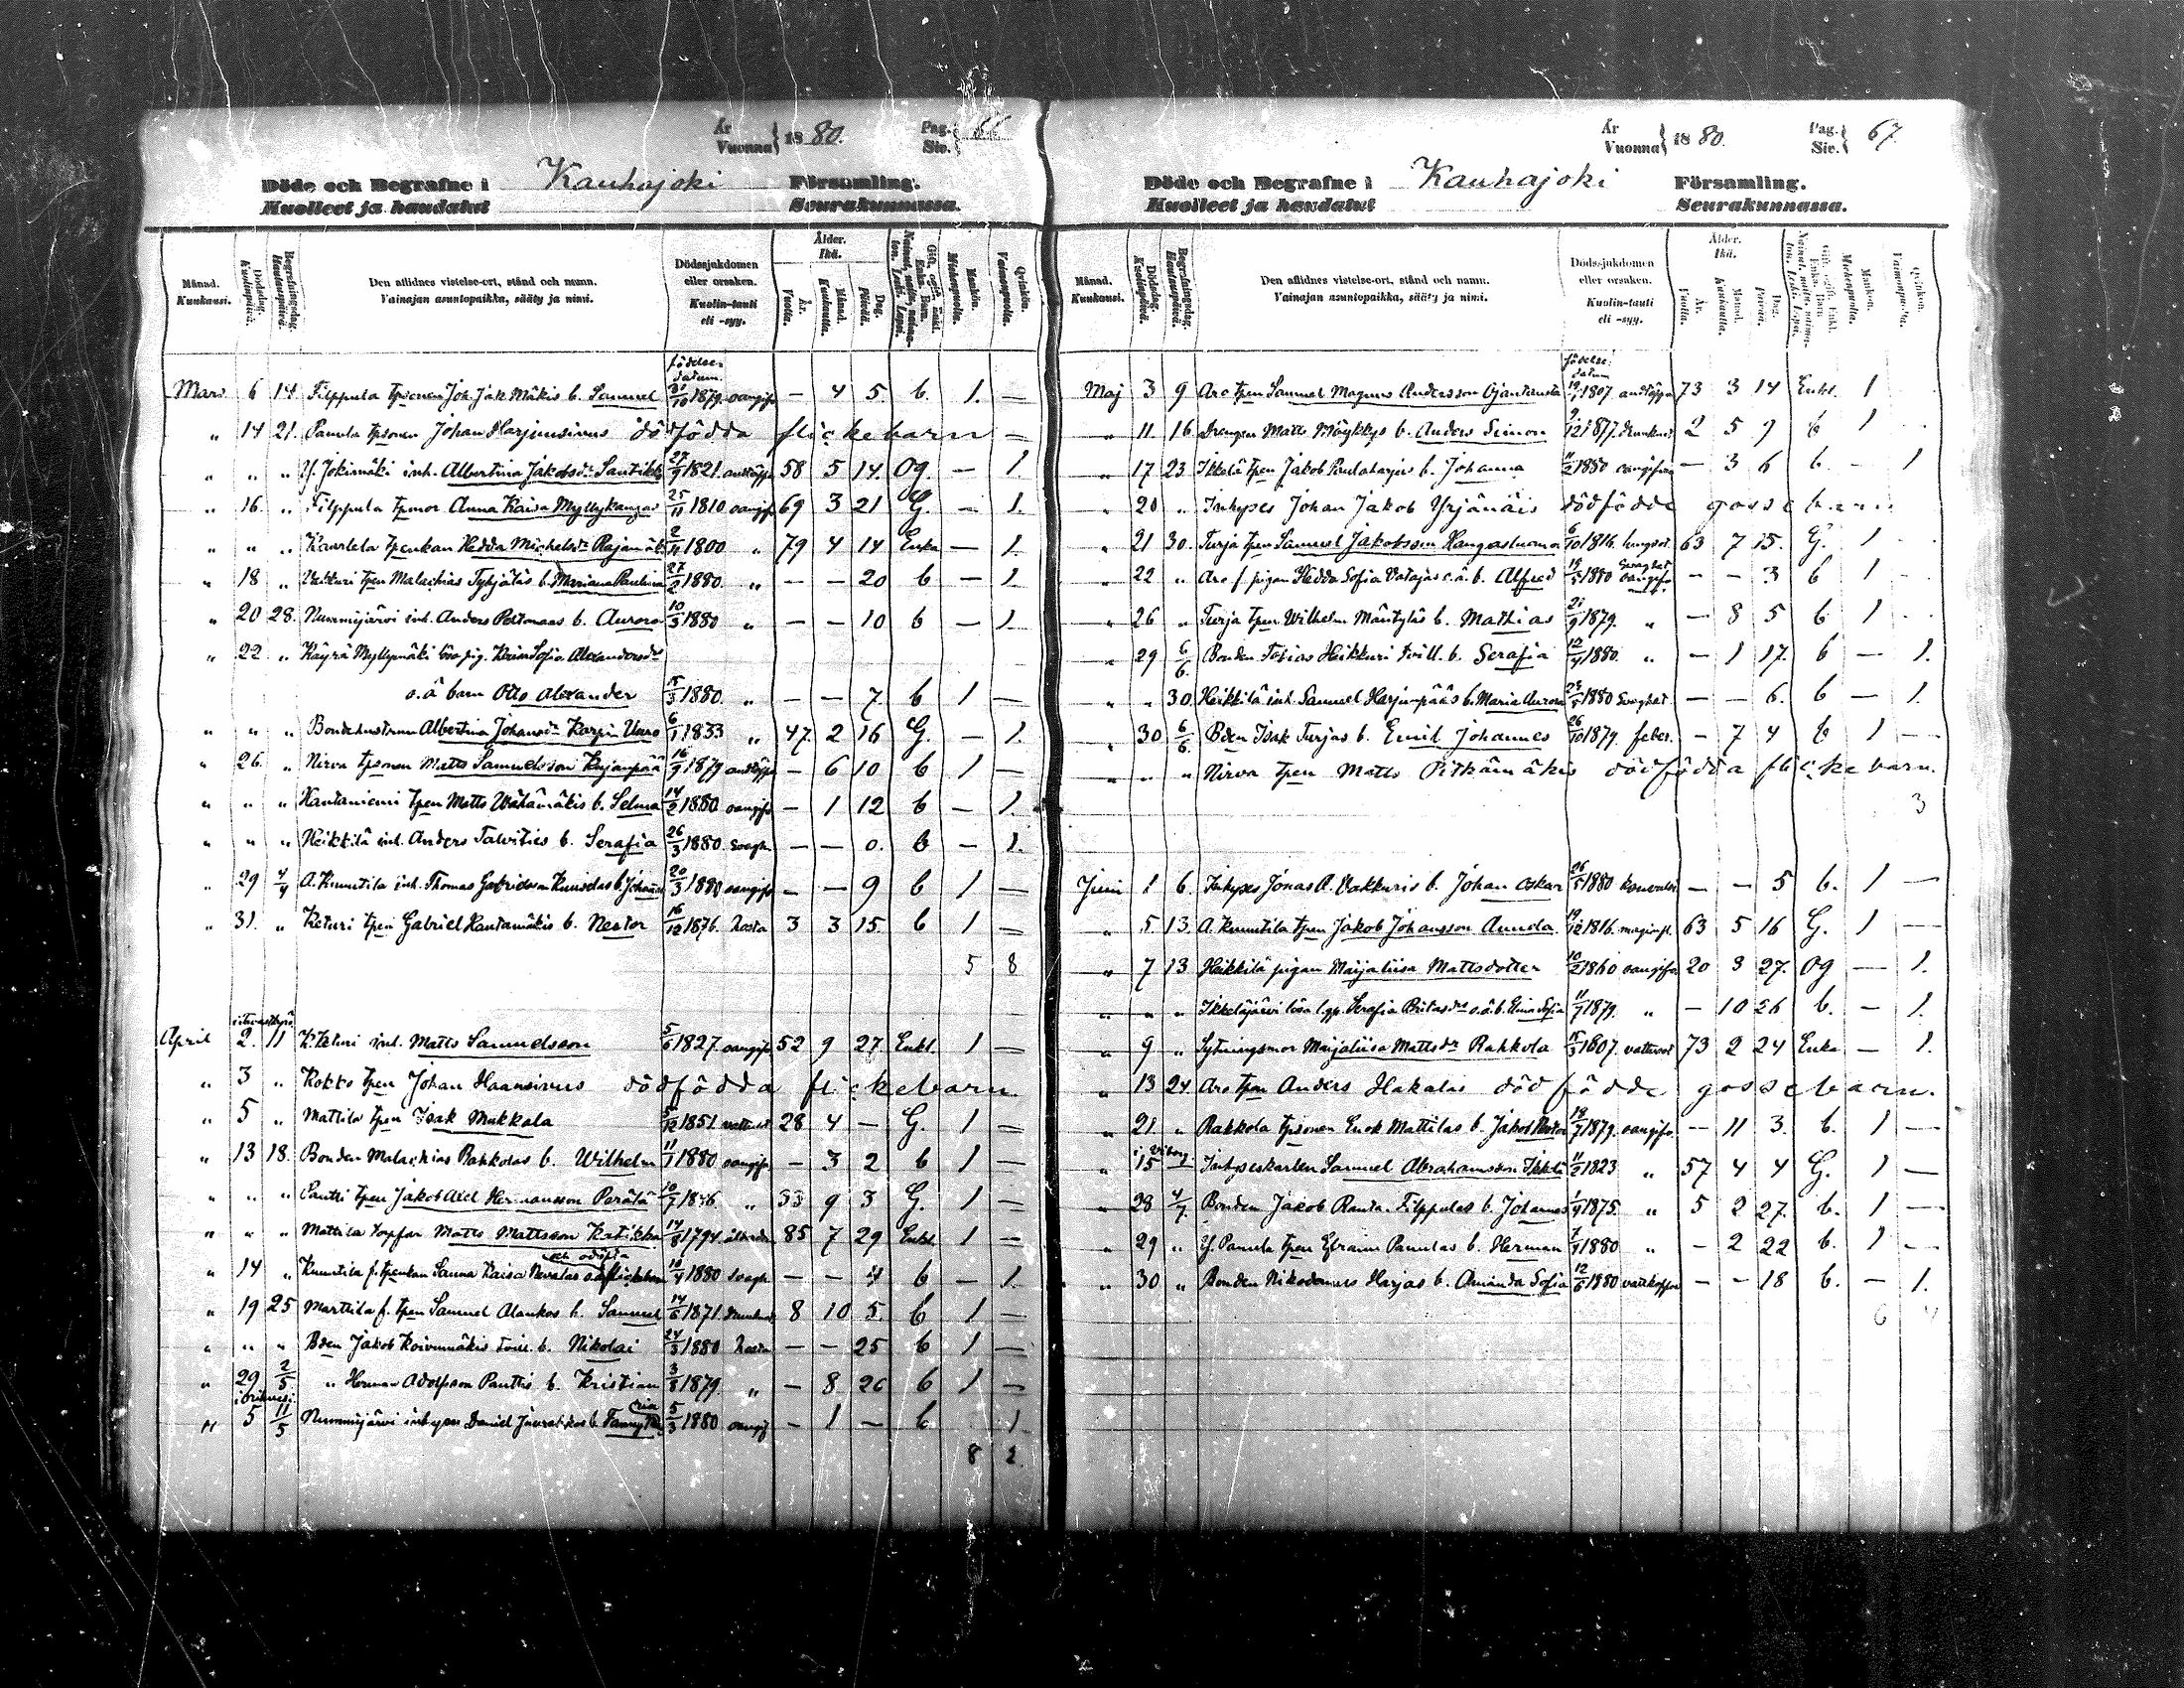 År Vuonna 1880. Pag. Siv. 66
Döde och Begrafne i Kauhajoki Församling.
Kuolleet ja haudatut Seurakunnassa.
Månad. Kuukausi. Dödsdag. Kuolinpäivä. Begrafningsdag. Hautauspäivä. Den aflidnes vistelse-ort, stånd och namn. Vainajan asuntopaikka, sääty ja nimi. Dödssjukdomen eller orsaken. Kuolin-tauti eli -syy. Ålder. Ikä. År. Vuotta. Månad. Kuukautta. Dag. Päivää. Mankön. Miehenpuolia. Qvinkön. Vaimonpuolia.
födelse-datum.
Mars 6 14 Filppula tpsonen Joh. Jak. Mäkis b. Samuel 31/10 1879. oangifv — 4 5. b. 1. —
" 14 21. Panula tpsonen Johan Harjunsivus dödfödda flickebarn —
" " " Y. Jokimäki inh. Albertina Jakobsdr Santikko 27/9 1821. andtäppa 58 5 14. Og. — 1.
" 16. " Filppula tpmor Anna Kaisa Myllykangas 25/11 1810 oangifv 69 3 21 G. — 1.
" " " Kaarlela tpenkan Hedda Michelsdr Rajamäk 2/11 1800 " 79 4 14 Enka — 1.
" 18 " tpen Malachias b. Mariana Paulina 27/2 1880. " — — 20 b — 1.
" 20 28. Nummijärvi inh. Anders Peltomaas b. Aurora 10/3 1880 " — — 10 b — 1.
" 22 " Käyrä Myllymäki pig. Sofia Alexandersdr
o.ä barn Otto Alexander 15/3 1880. " — — 7. b 1 —
" " " Bondehustrun Albertina Johansdr Karpin Uuro 6/1 1833 " 47. 2 16 G. — 1.
" 26. " Nirva tpsonen Matts Samuelsson Kujanpää 16/9 1879 andtäppa — 6 10 b 1 —
" " " Hautaniemi tpen Matts Wähämäkis b. Selma 14/2 1880 oangifv — 1 12 b — 1.
" " " Heikkilä inh. Anders Talvities b. Serafia 26/3 1880. svagh. — — 0. b — 1.
" 29 4/4 A. Knuutila inh. Thomas Gabrielsson b. Johannes 20/3 1880 oangifv — — 9 b 1 —
" 31. " Keturi tpen Gabriel Hautamäkis b. Nestor 16/12 1876. hosta 3 3 15. b 1 —
5 8
April 2. 11 K. Keturi inh. Matts Samuelsson 5/6 1827. oangifv 52 9 27. Enkl. 1 —
" 3 " Kokko tpen Johan Haansivus dödfödda flickebarn
" 5 " Mattila tpen Isak Mukkala 5/12 1851. 28 4 — G. 1 —
" 13 18. Bonden Malachias Rahkolas b. Wilhelm 11/1 1880 oangifv — 3 2 b 1 —
" " " Pantti tpen Jakob Axel Hermansson Perälä 10/7 1846. " 33 9 3 G. 1 —
" " " Mattila Matts Mattsson Katikka 14/8 1794. ålderdom 85 7 29 Enkl 1 —
och odöpta
" 14 " Knuutila f. tpenkan Sanna Kaisa Nevalas 10/4 1880 svagh — — 4 b — 1.
" 19 25 Marttila f. tpen Samuel Alankos b. Samuel 14/6 1871. 8 10 5. b 1 —
" " " Bden Jakob Koivumäkis b. Nikolai 24/3 1880 hosta — — 25 b 1 —
" 29 2/5 " Herman Adolfsson Panttis b. Kristian 3/8 1879. " — 8 26 b 1 —
" 5 11/5 Nummijärvi inhysen Daniel b. Fanny 5/3 1880 oangif — 1 — b 1
8 2.
År Vuonna 1880. Pag. Siv. 67.
Döde och Begrafne i Kauhajoki Församling.
Kuolleet ja haudatut Seurakunnassa.
Månad. Kuukausi. Dödsdag. Kuolinpäivä. Begrafningsdag. Hautauspäivä. Den aflidnes vistelse-ort, stånd och namn. Vainajan asuntopaikka, sääty ja nimi. Dödssjukdomen eller orsaken. Kuolin-tauti eli -syy. Ålder. Ikä. År. Vuotta. Månad. Kuukautta. Dag. Päivää. Mankön. Miehenpuolia. Qvinkön. Vaimonpuolia.
födelse-datum
Maj 3 9 Aro tpen Samuel Magnus Andersson Ojantausta 19/1 1807. andtäppa 73 3 14 Enkl. 1 .
" 11. 16. Drengen Matts Möykkys b. Anders Simon 2/12 1877. drunknat 2 5 9 b 1 .
" 17 23. Ikkelä tpen Jakob Rautaharjus b. Johanna 11/2 1880 oangifven — 3 6 b. — 1
" 20 " Inhyses Johan Jakob Yrjänäis dödfödde gossebarn.
" 21 30. Turja tpen Samuel Jakobsson Hangasluoma 6/10 1816. lungsot 63 7 15. G. 1
" 22 " Aro f. pigan Hedda Sofia Vatajas o.ä. b. Alfred 19/5 1880 Svaghet — — 3 b 1
" 26 " Turja tpen Wilhelm Mäntyläs b. Mathias 21/9 1879. " — 8 5 b 1 .
" 29 6/6. Bonden Tobias Heikkuri tvill. b. Serafia 12/4 1880. " — 1 17. b — 1.
" " 30. Heikkilä inh. Samuel Harjunpääs b. Maria Aurora 24/5 1880 Svaghet — — 6. b — 1.
" 30 6/6. Bden Isak Turjas b. Emil Johannes 26/10 1879. feber. — 7 4 b 1 —
" " " Nirva tpen Matts Pitkämäkis dödfödda flickebarn.
3
Juni 1 6. Inhyses Jonas A. Vakkuris b. Johan Oskar 26/5 1880 — — 5 b. 1 —
" 5 13. A. Knuutila tpen Jakob Johansson Aunola. 19/12 1816. 63 5 16 G. 1 —
" 7 13 Heikkilä pigan Maijaliisa Mattsdotter 10/2 1860 oangifven 20 3 27. Og — 1.
" " " Ikkeläjärvi Serafia o.ä.b. Sofia 11/7 1879. " — 10 26 b. — 1.
" 9 " Sytningsmor Maijaliisa Mattsdr Rahkola 15/3 1807. vattusot 73 2 24 Enka — 1.
" 13 24 Aro tpen Anders Hakalas dödfödde gossebarn.
" 21 " Rahkola tpsonen Enok Mattilas b. Jakob Nestor 18/7 1879. oangifv. — 11 3. b. 1 —
i Viborg.
" 15 Inhyseskarlen Samuel Abrahamsson Ikkelä 11/2 1823. " 57 4 4 G. 1 —
" 28 4/7. Bonden Jakob Ranta-Filppulas b. Johannes 1/4 1875. " 5 2 27. b. 1 —
" 29 " Y. Panula tpen Efraim Panulas b. Herman 7/4 1880 " — 2 22 b. 1 —
" 30 " Bonden Nikodemus Harjas b. Amanda Sofia 12/6 1880 vattkoppor — — 18 b. — 1.
6 4